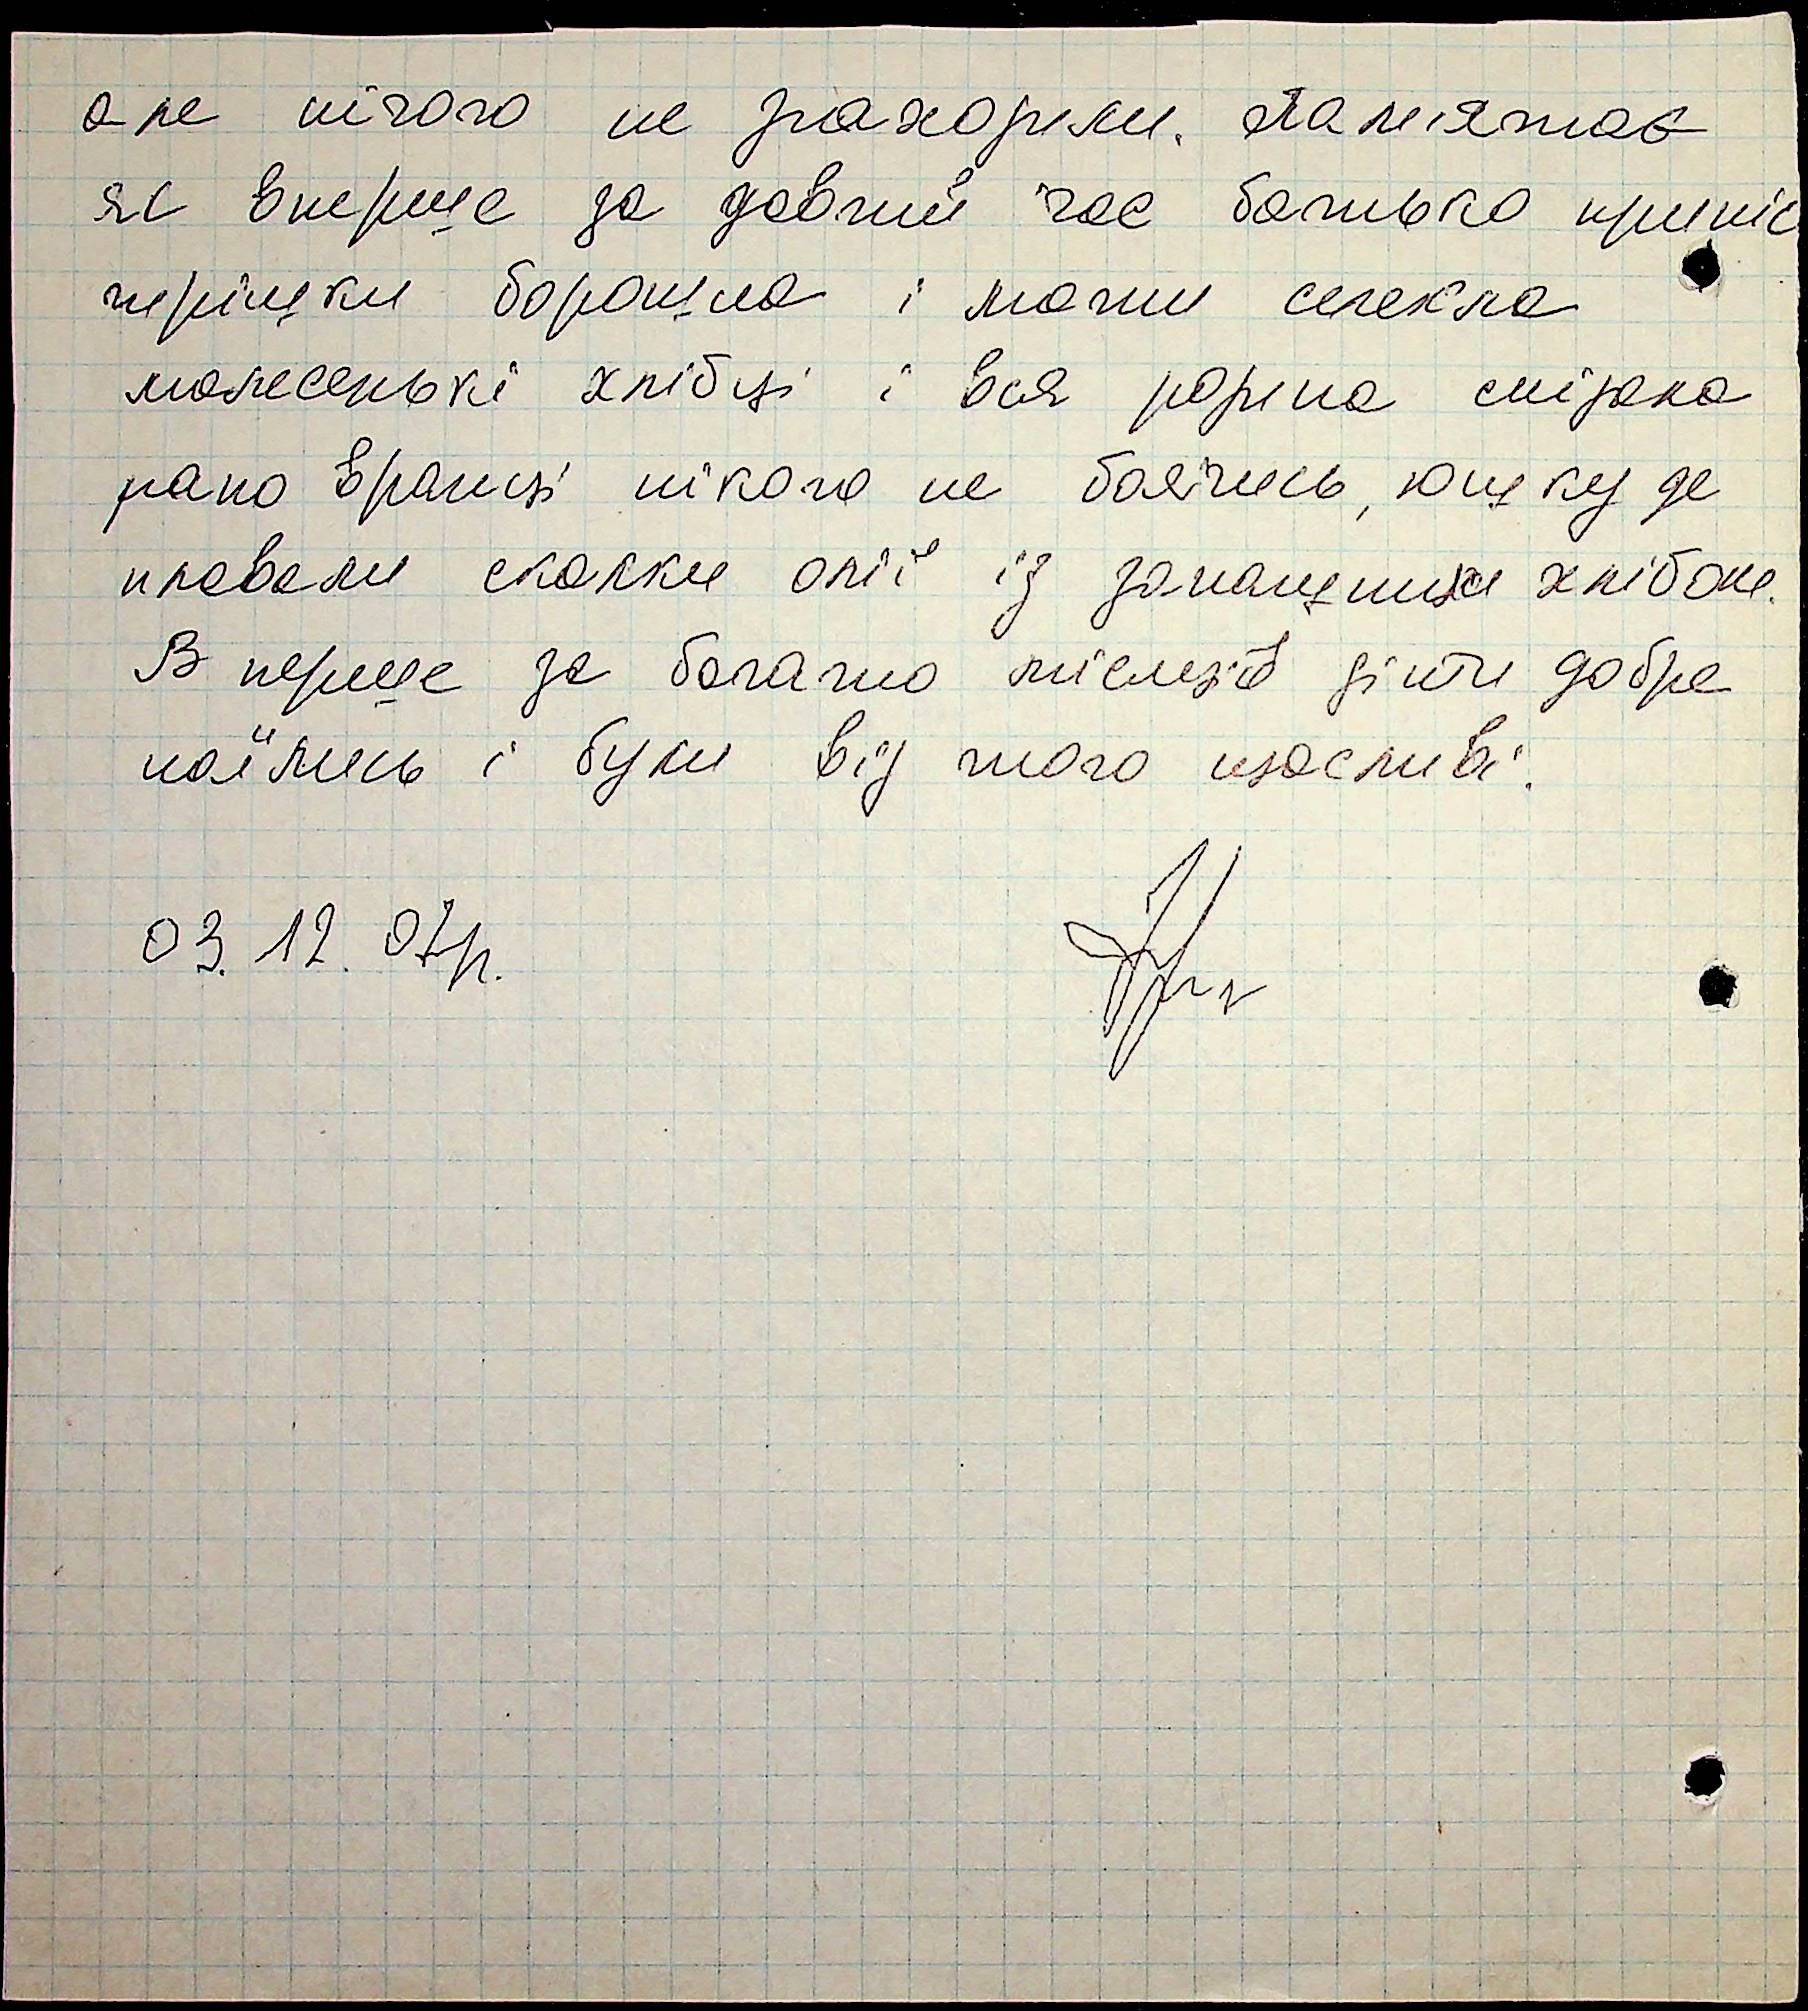 але нічого не знаходили. Пам'ятає
як вперше за довгий час батько приніс
трішки борошна і мати спекла
малесенькі хлібці і вся родина снідала
рано вранці нікого не боячись, юшку де
плавали скалки олії із запашним хлібом.
В перше за багато місяців діти добре
поїлись і були від того щасливі.
03.12.07р.